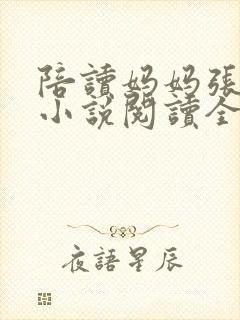 陪讀妈妈張
小說閱讀全
夜語星辰